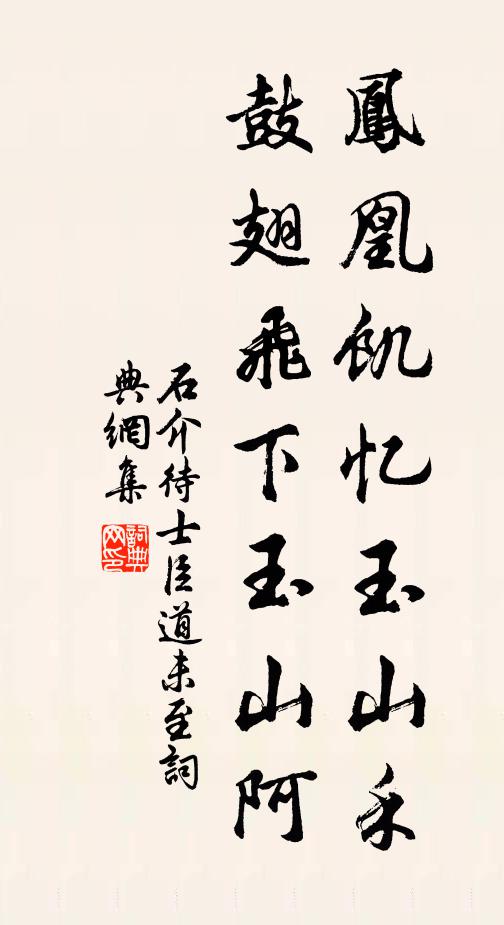 鳳凰飢忆玉山禾
鼓翅飛下玉山阿
石介待士臣道未至詞
典網集
詞典網印